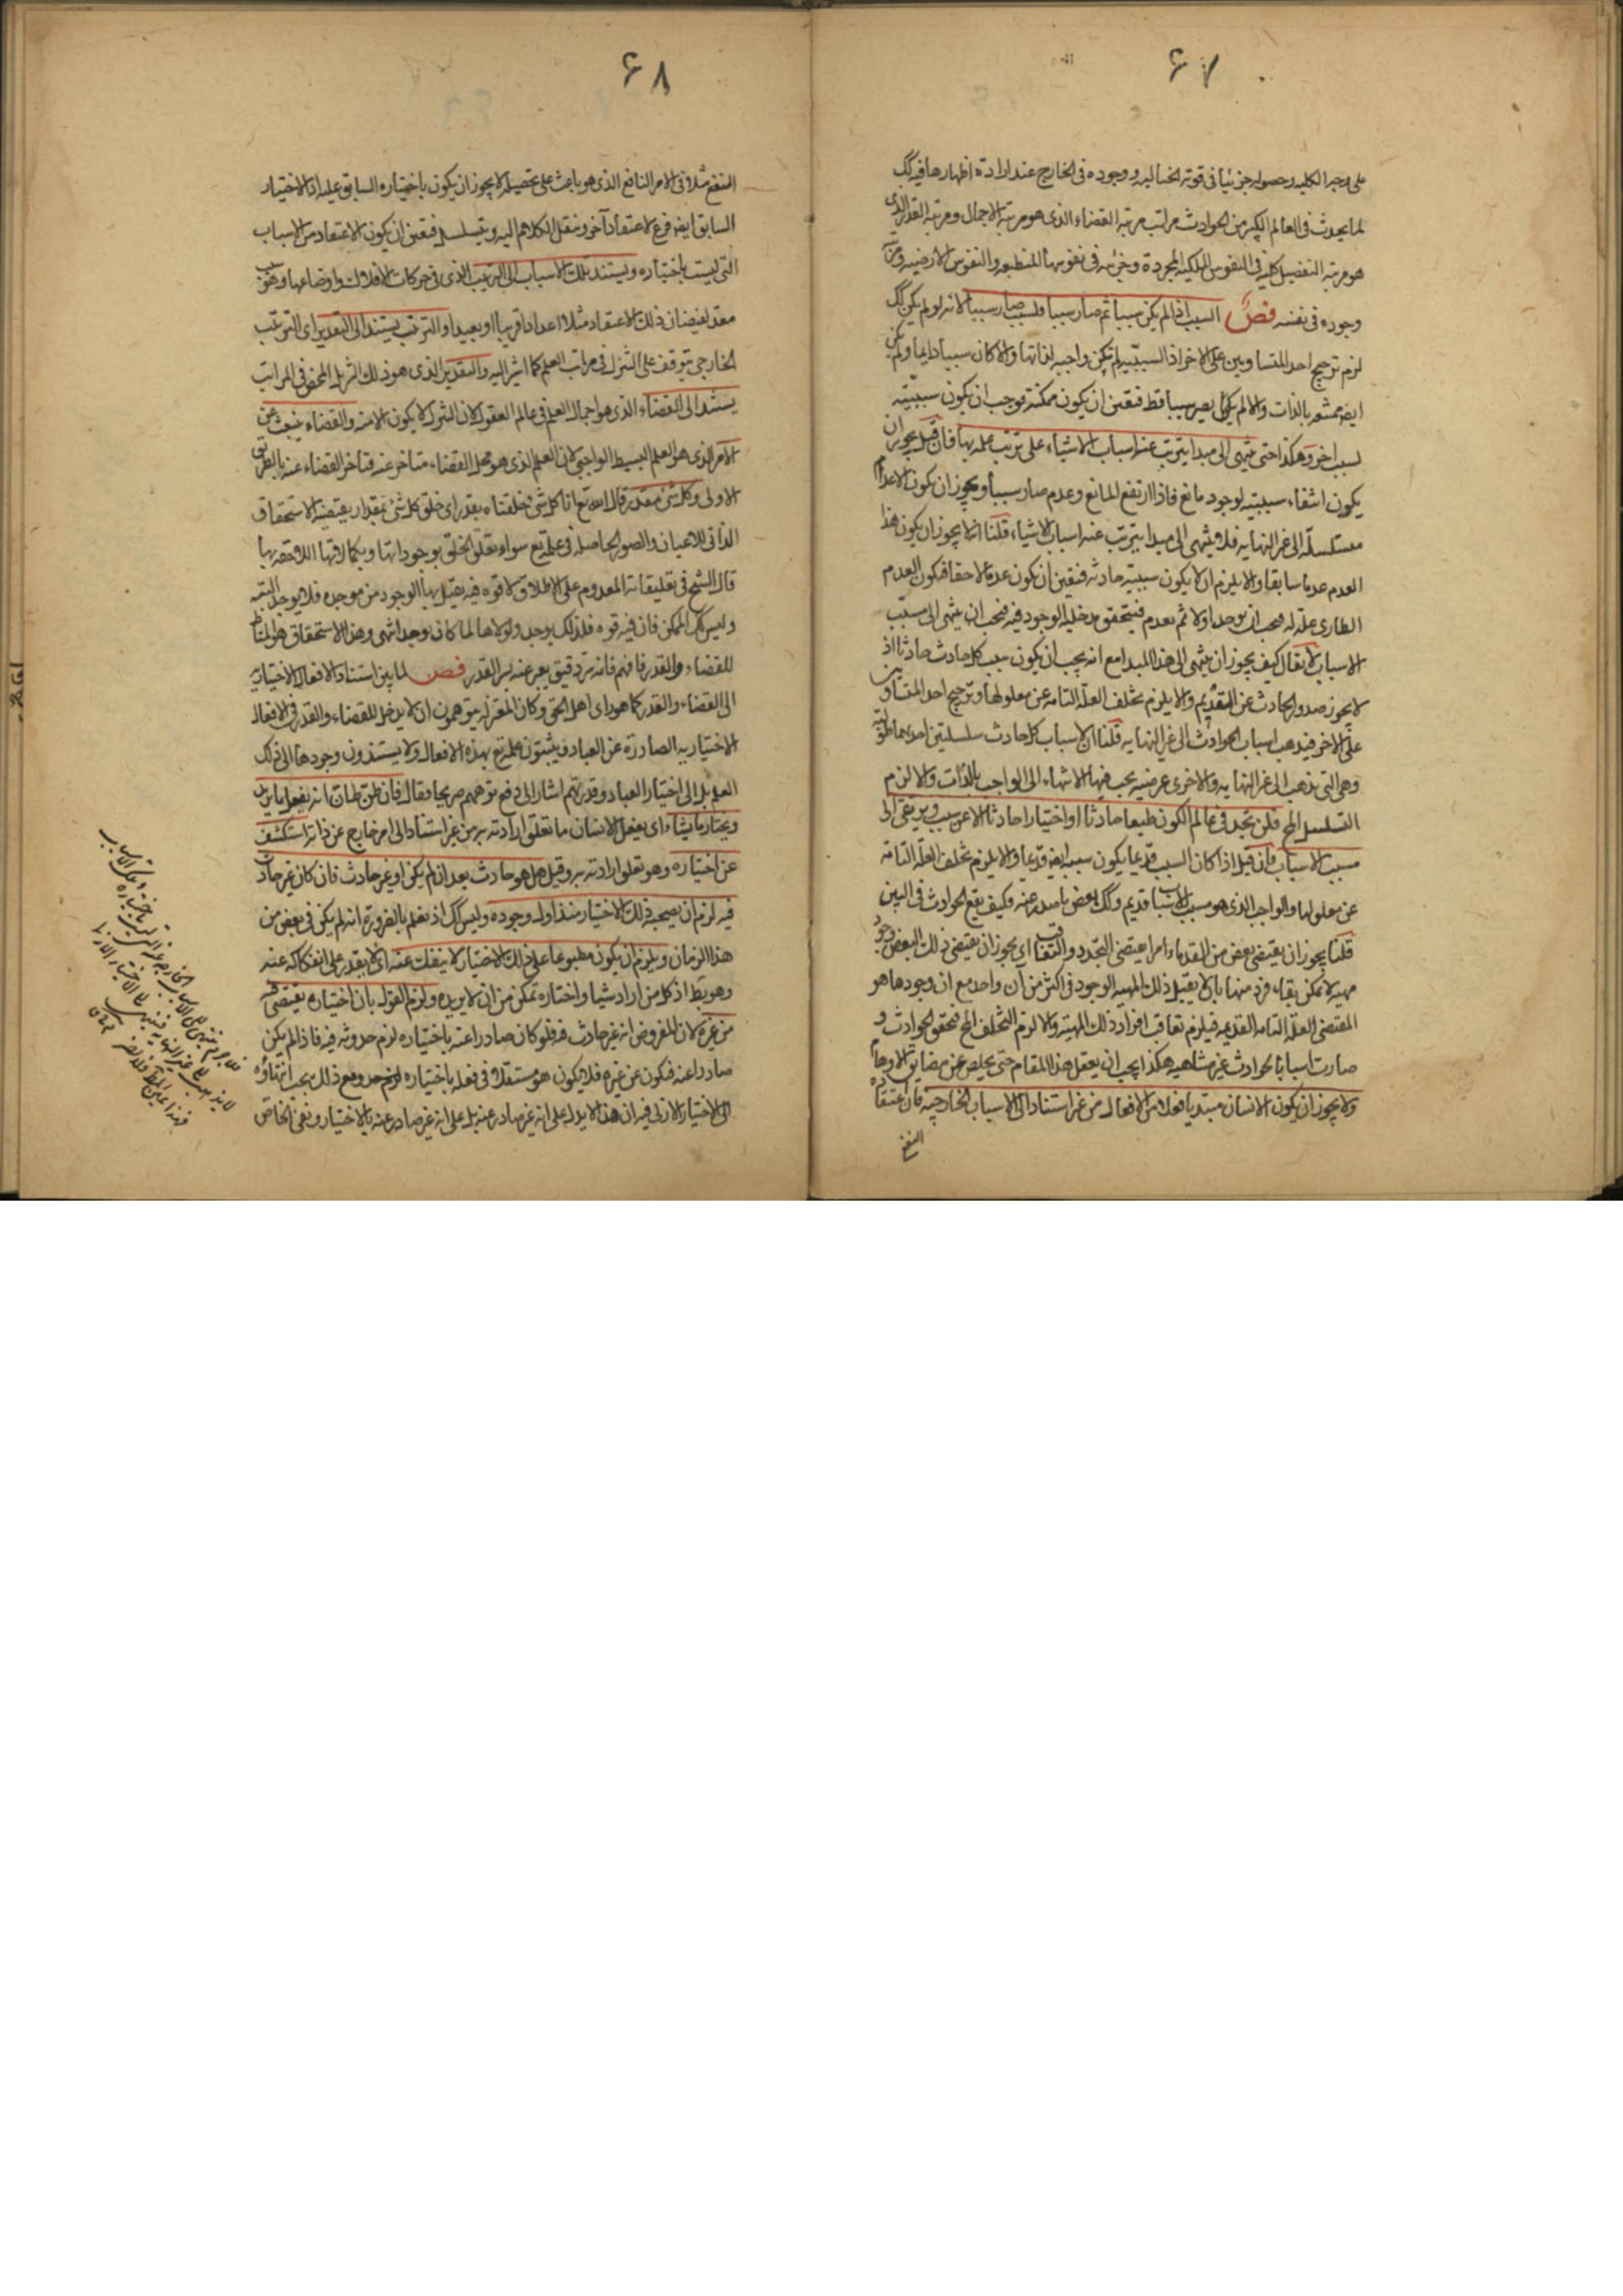 ۶۷
على وجه الكليه وحصوله جزئيا فى قوته الخياليه ووجوده فى الخارج عند ارادة اظهارها فيه كك
لما يحدث فى العالم الكبير من الحوادث مراتب مرتبه القضاء الذى هو مرتبه الاجمال ومرتبه القدر الذى
هو مرتبه التفصيل كليه فى النفوس الملكيه المجردة وجزئيه فى نفوسها المنطبعه والنفوس الارضيه ومرتبه
وجوده فى نفسه فص السبب اذا لم يكن سببا ثم صار سببا فلسبب صار سببا لانه لو لم يكن كك
لزم ترجيح احد المتساويين على الاخر اذ السببيه لم تكن واجبه لذاتها والا كان سببا دايما ولم يكن
ايضا ممتنعه بالذات والا لم يكن يصير سببا قط فتعين ان يكون ممكنة فوجب ان يكون سببيته
لسبب اخر وهكذا حتى ينتهى الى مبدا يترتب عنه اسباب الاشياء على ترتيب علمه بها فان قيل يجوز ان
يكون انتفاء سببيته لوجود مانع فاذا ارتفع المانع وعدم صار سببا ويجوز ان يكون الاعدام
متسلسلة الى غير النهايه فلا ينتهى الى مبدا يترتب عنه اسباب الاشياء قلنا انه لا يجوز ان يكون هذا
العدم عدما سابقا والا يلزم ان لا يكون سببيته حادثه فتعين ان تكون عدما لاحقا فيكون العدم
الطارى علة له فيجب ان يوجد اولا ثم يعدم فيتحقق مدخلية الوجود فيه فيجب ان ينتهى الى مسبب
الاسباب لا يقال كيف يجوز ان ينتهى الى هذا المبدا مع انه يجب ان يكون سبب كل حادث حادثا اذ
لا يجوز صدور الحادث عن القديم والا يلزم تخلف العلة التامه عن معلولها وترجيح احد المتساويين
على الاخر فيذهب اسباب الحوادث الى غير النهايه قلنا ان لاسباب كل حادث سلسلتين احديهما طولية
وهى التى تذهب الى غير النهايه والاخرى عرضيه يجب فيها الانتهاء الى الواجب بالذات والا لزم
التسلسل المح فلن تجد فى عالم الكون طبعا حادثا او اختيارا حادثا الا عن سبب ويرتقى الى
مسبب الاسباب فان قيل اذا كان السبب قديما يكون مسببه ايضا قديما والا يلزم تخلف العلة التامة
عن معلولها والواجب الذى هو مسبب الاسباب قديم وكك بعض ما صدر عنه وكيف يقع الحوادث فى البين
قلنا يجوز ان يقتضى بعض من القدماء امرا يقتضى التجدد والتعاقب اى يجوز ان يقتضى ذلك البعض وجود
مهيه لا يمكن بقاء فرد منها بان لا يقبل ذلك المهيه الوجود فى اكثر من آن واحد مع ان وجودها هو
المقتضى العلة التامه القديمه فيلزم تعاقب افراد ذلك المهية والا لزم التخلف المح فتحقق الحوادث و
صارت اسبابا لحوادث غير متناهيه هكذا يجب ان يعقل هذا المقام حتى يخلص عن مضايق الاوهام
ولا يجوز ان يكون الانسان مبتديا فعلا من الافعال من غير استناد الى الاسباب الخارجيه فان اعتقاد
النفع
۶۸
النفع مثلا فى الامر النافع الذى هو باعث على تحصيله لا يجوز ان يكون باختياره السابق عليه اذ الاختيار
السابق ايضا فرع لاعتقاد آخر وننقل الكلام اليه ويتسلسل فتعين ان يكون الاعتقاد من الاسباب
التى ليست باختياره ويستند تلك الاسباب الى الترتيب الذى فى حركات الافلاك واوضاعها وهو سبب
معد لفيضان ذلك الاعتقاد مثلا اعدادا قريبا او بعيدا والترتيب يستند الى التقدير اى الترتيب
الخارجى يتوقف على التنزل فى مراتب العلم كما اشير اليه والتقدير الذى هو ذلك التنزيل المحض فى المراتب
يستند الى القضاء الذى هو اجمال العلم فى عالم العقول لان التنزل لا يكون الا منه والقضاء ينبعث من
الامر الذى هو العلم البسيط الواجبى لان العلم الذى هو محل القضاء متاخر عنه فتاخر القضاء عنه بالطريق
الاولى وكل شئ مقدر قال الله تع انا كل شئ خلقناه بقدر اى خلق كل شئ بمقدار يقتضيه الاستحقاق
الذاتى للاعيان والصور الحاصله فى علمه تع سواء تعلق الخلق بوجوداتها وبكمالاتها اللاحقه بها
قال الشيخ فى تعليقاته المعدوم على الاطلاق لا قوه فيه يقبل بها الوجود من موجده فلا يوجد البته
وليس كك الممكن فان فيه قوه فلذلك يوجد ولولاها لما كان يوجد انتهى وهذا الاستحقاق هو المناط
للقضاء والقدر فافهم فانه سر دقيق يعبر عنه بسر القدر فص لما بين استناد الافعال الاختياريه
الى القضاء والقدر كما هو راى اهل الحق وكان المعتزله يتوهمون ان لا يدخل للقضاء والقدر فى الافعال
الاختياريه الصادرة عن العباد ويثبتون علمه تع بهذه الافعال ولا يستندون وجودها الى ذلك
العلم بل الى اختيار العباد وقدرتهم اشار الى دفع توهمهم صريحا فقال فان ظن ظان انه يفعل ما يريد
ويختار ما يشاء اى يفعل الانسان ما تعلق ارادته به من غير استناد الى امر خارج عن ذاته استكشف
عن اختياره وهو تعلق ارادته به وقيل هل هو حادث بعد ان لم يكن او غير حادث فان كان غير حادث
فيه لزم ان يصحبه ذلك الاختيار منذ اول وجوده وليس كك اذ نعلم بالضرورة انه لم يكن فى بعض من
هذا الزمان ويلزم ان يكون مطبوعا على ذلك الاختيار لا ينفك عنه اى لا يقدر على انفكاكه عنه
وهو بط اذ كل من اراد شيئا واختاره تمكن من ان لا يريده ولزم القول بان اختياره يقتضى فيه
من غيره لان المفروض انه غير حادث فيه فلو كان صادرا عنه باختياره لزم حدوثه فيه فاذا لم يكن
صادرا عنه فيكون عن غيره فلا يكون هو مستقلا فى فعله باختياره ومع ذلك يجب انتهاؤه
الى الاختيار الازلى فيه ان هذا لا يدل على انه غير صادر عنه بل على انه غير صادر عنه بالاختيار ونفى الخاص